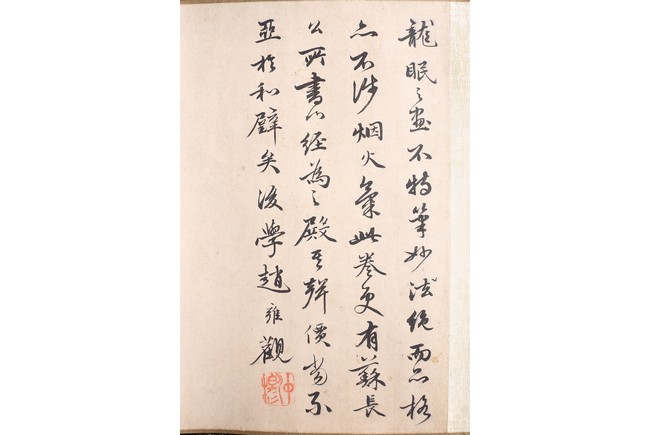 龍眠之畫不特筆妙法絕而品格
亦不涉烟火氣此卷更有蘇長
公所書心經為之殿其聲價當不
亞於和璧矣後學趙雍觀
仲穆